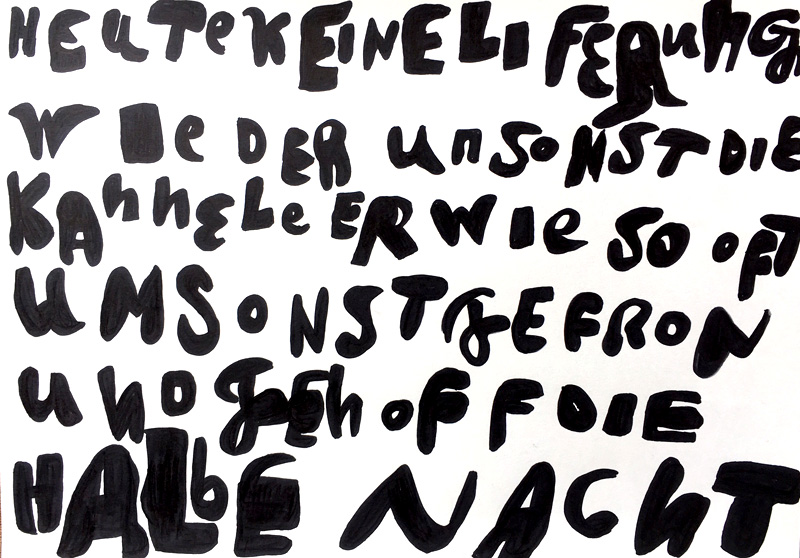 HEUTe KEINE LIFERUnG
WIeDER UnSoNST DIE
KAnnELe ER WIe SO oFT
UMSoNST gEFRoN
UND gEhoFF DIE
HALbE NACHT